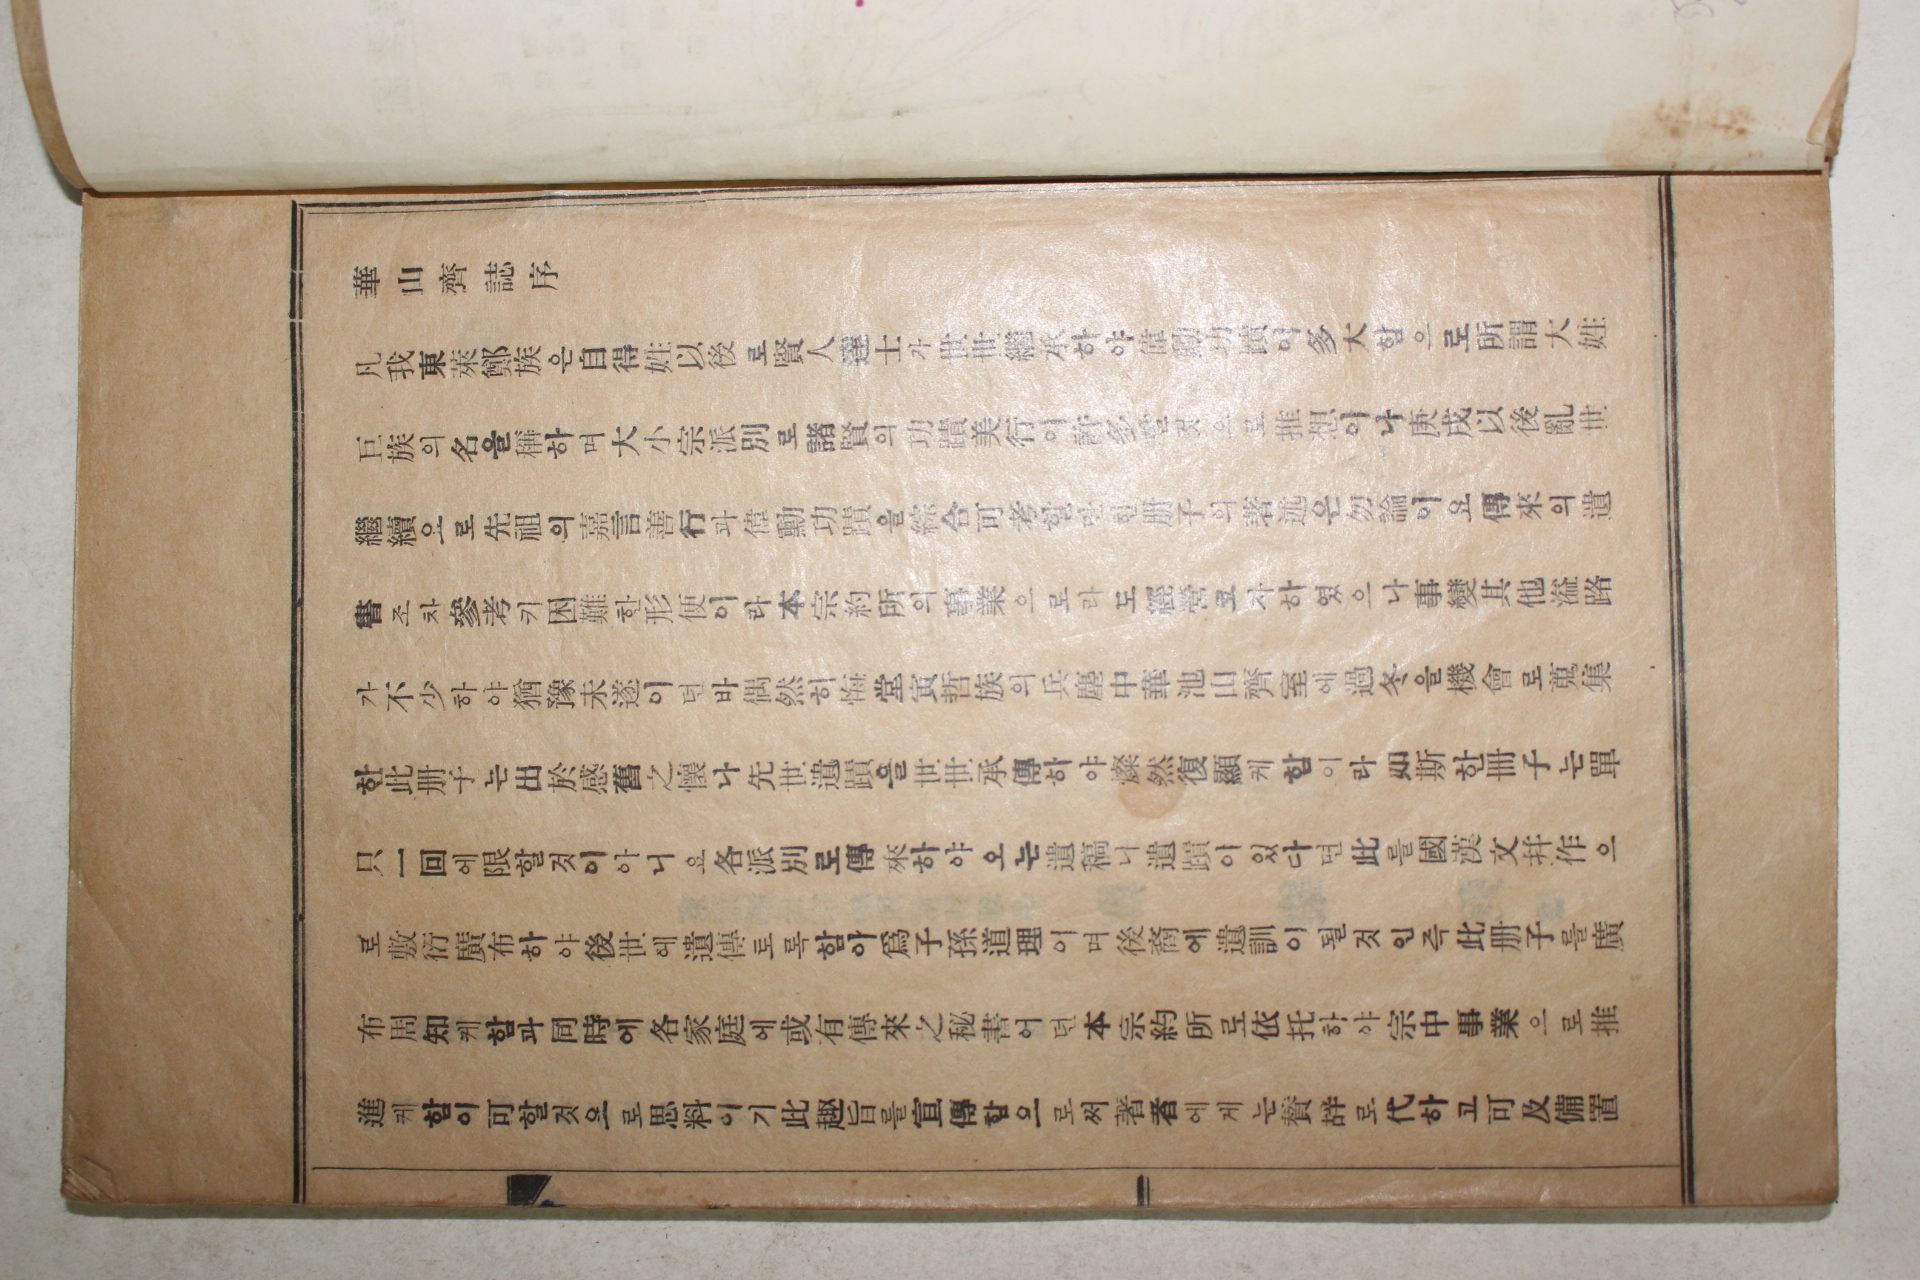 華山齊誌序
凡我東萊鄭族은自得姓以後로賢人達士가世世繼承하야偉勳功蹟이多大함으로所謂大姓
巨族의名을稱하며大小宗派別로諸賢의功蹟美行이許多할것으로推想이나庚戌以後亂世
繼續으로先祖의嘉言善行과偉勳功蹟을綜合可考할만한册子의著述은勿論이요傳來의遺
書조차參考키困難한形便이라本宗約所의事業으로라도經營코자하였으나事變其他溢路
가不少하야猶豫未遂이던바偶然히悔堂寅哲族의兵塵中華池山齊室에過冬을機會로蒐集
한此册子는出於感舊之懷나先世遺蹟을世世承傳하야燦然復顯케함이라如斯한冊子는單
只一回에限할것이아니요各派別로傳來하야오는遺稿니遺蹟이있다면此를國漢文幷作으
로敷衍廣布하야後世에遺傳토록함아爲子孫道理이며後裔에遺訓이될것인즉此册子를廣
布周知케함과同時에各家庭에或有傳來之秘書어던本宗約所로依托하야宗中事業으로推
進케함이可할것으로思料이기此趣旨를宣傳함으로써著者에게는贊辞로代하고可及備置